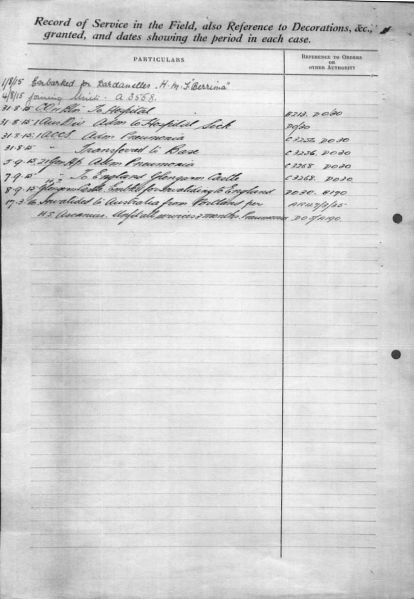 Record of Service in the Field, also Reference to Decorations, &c.,
granted, and dates showing the period in each case.
PARTICULARS
REFERENCE TO ORDERS
OR
OTHER AUTHORITY
1/8/15 Embarked for Dardanelles H.M.T "Berrima"
4/8/15 Joining Unit - A 3568.
31.8.15 To Hospital B213. DO20
31.8.15 Adm to Hospital Sick DO20
31.8.15 1 ACCS Adm Pneumonia C3256 DO20
31.8.15 " Transferred to Base C3256. DO20
5.9.15 21 Gen Hp Adm Pneumonia C3268 DO20
7.9.15 " " To England Glengorm Castle C3268. DO20
8.9.15 Glengorm Castle Embkd for Invaliding to England DO20.
17.3.16 Invalided to Australia from per
H.S. Ascanius. months. Pneumonia